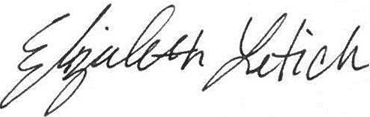 Elizabeth Letich